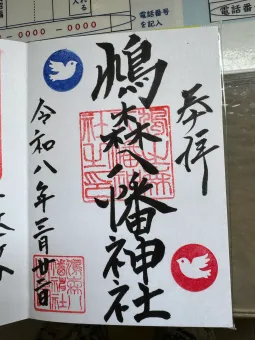 電話番号
を記入
- 0000 - 0000
電話番号
奉拝
鳩森八幡神社
令和八年三月廿二日